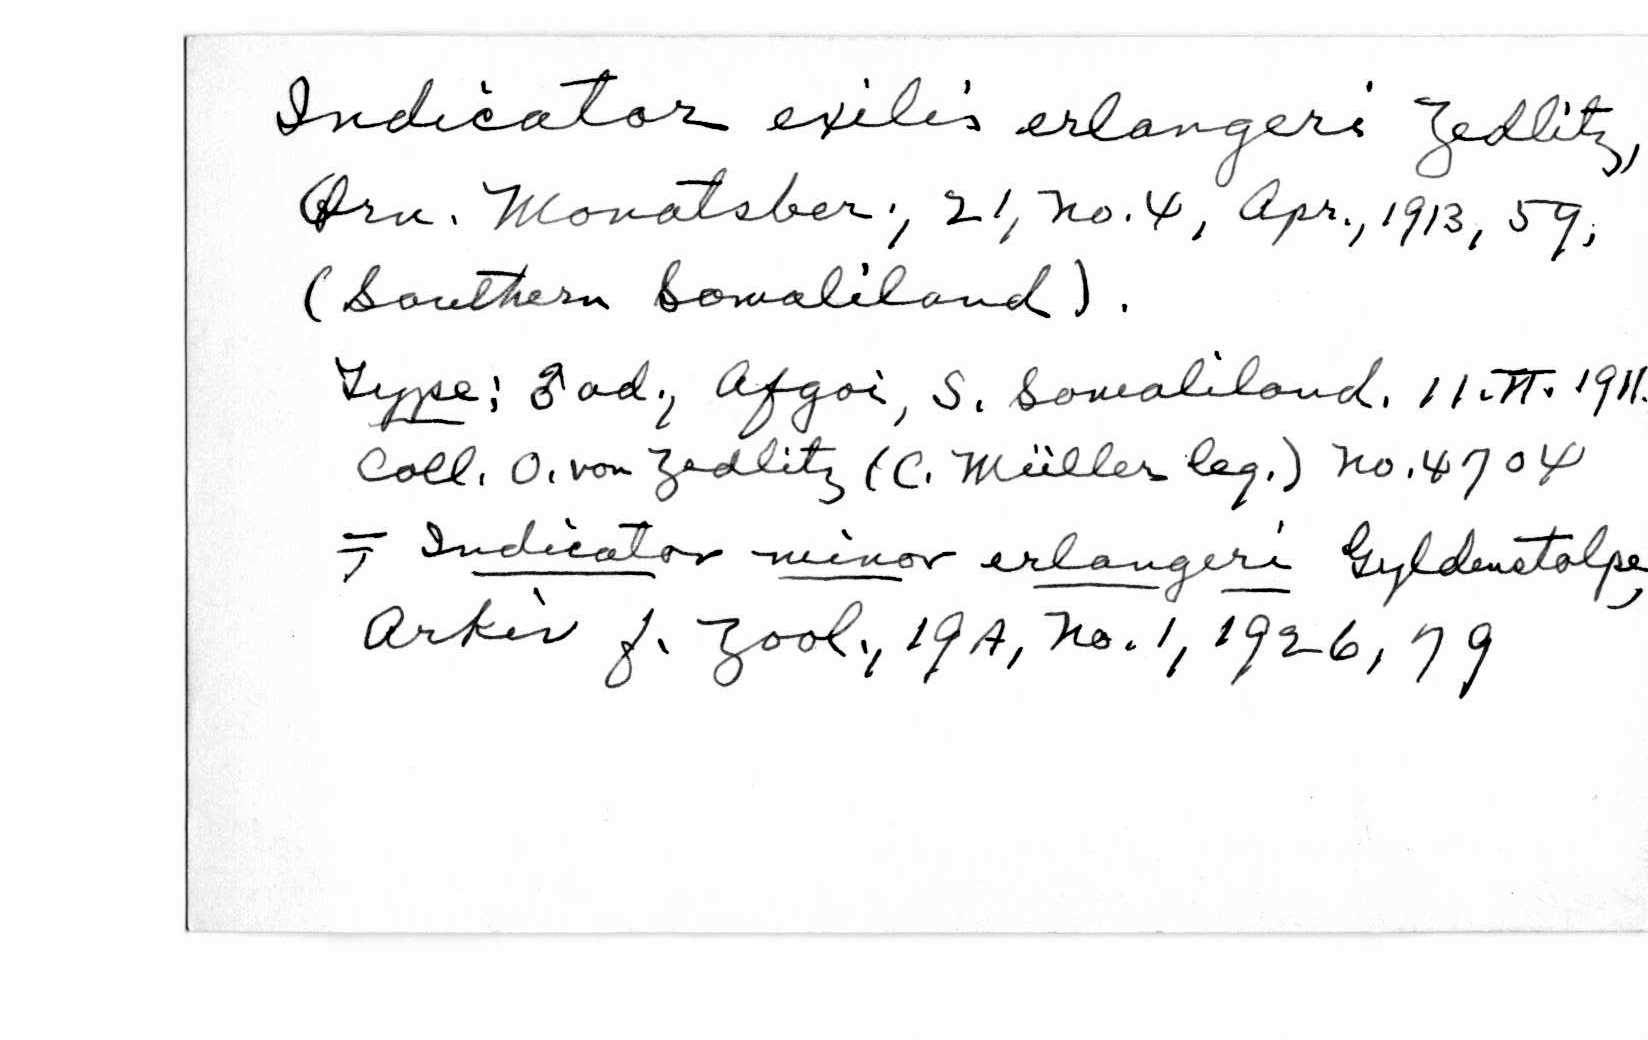 Indicator exilis erlangeri Zedlitz,
Orn. Monatsber., 21, no. 4, Apr., 1913, 59,
(Southern Somaliland).
Type: ♂ ad., Afgoi, S. Somaliland. 11.II. 1911.
Coll. O. von Zedlitz (C. Müller leg.) no. 4704
= Indicator minor erlangeri Gyldenstolpe,
Arkiv f. Zool., 19A, no. 1, 1926, 79